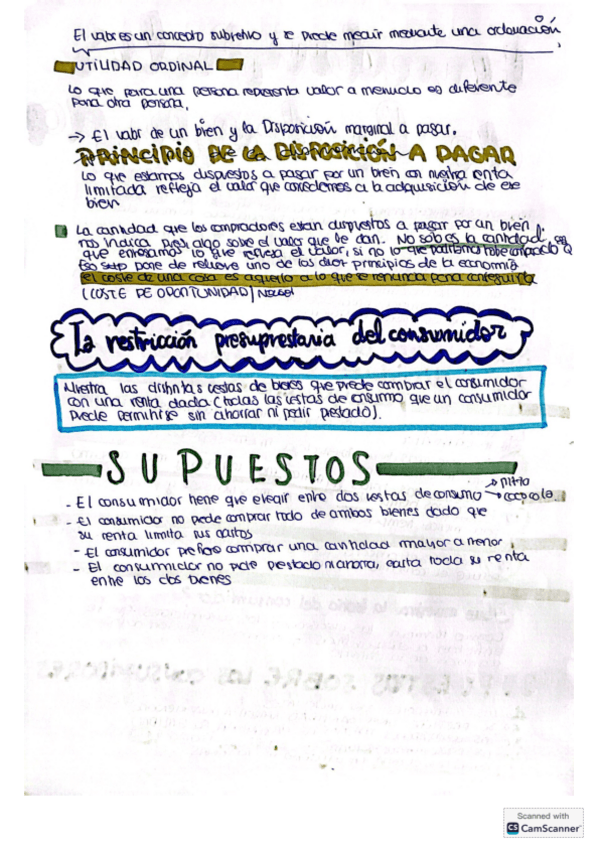 El valor es un concepto subjetivo y se puede medir mediante una ordenación
UTILIDAD ORDINAL
Lo que para una persona representa valor a menudo es diferente
para otra persona.
→ El valor de un bien y la Disposición marginal a pasar.
PRINCIPIO DE LA DISPOSICIÓN A PAGAR
Lo que estamos dispuestos a pasar por un bien con nuestra renta
limitada refleja el valor que concedemos a la adquisición de ese
bien
La cantidad que los compradores estan dispuestos a pagar por un bien,
nos indica pues algo sobre el valor que le dan. No solo es la cantidad
que entregamos lo que refleja el valor, si no lo que podríamos
Eso pone de relieve uno de los principios de la economía
el coste de una cosa es aquello a lo que se renuncia para conseguirla
(COSTE DE OPORTUNIDAD)
La restricción presuprestaria del consumidor
Muestra las distintas cestas de bienes que puede comprar el consumidor
con una renta dada (todas las cestas de consumo que un consumidor
puede permitirse sin ahorrar ni pedir prestado).
SUPUESTOS
- El consumidor tiene que elegir entre dos cestas de consumo → pizza
→ cocacola
- El consumidor no puede comprar todo de ambos bienes dado que
su renta limita sus gastos
- El consumidor prefiere comprar una cantidad mayor a menor
- El consumidor no pide prestado ni ahorra, gasta toda su renta
entre los dos bienes
Scanned with
CS CamScanner